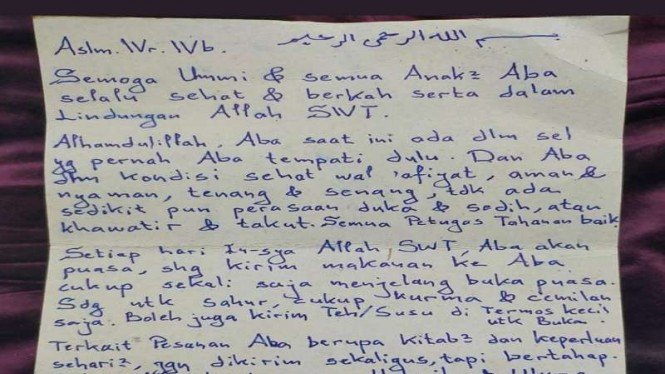 Aslm. Wr. Wb. بسم الله الرحمن الرحيم
Semoga Ummi & semua Anak2 Aba
selalu sehat & berkah serta dalam
Lindungan Allah SWT.
Alhamdulillah, Aba saat ini ada dlm sel
yg pernah Aba tempati dulu. Dan Aba
dlm kondisi sehat wal 'afiyat, aman &
nyaman, tenang & senang, tdk ada
sedikit pun perasaan duka & sedih, atau
khawatir & takut. Semua Petugas Tahanan baik.
Setiap hari In-sya Allah SWT, Aba akan
puasa, shg kirim makanan ke Aba
cukup sekali saja menjelang buka puasa.
Sdg utk sahur, cukup kurma & cemilan
saja. Boleh juga kirim Teh/Susu di Termos kecil
utk Buka.
Terkait Pesanan Aba berupa kitab2 dan keperluan
sehari2, jgn dikirim sekaligus, tapi bertahap.